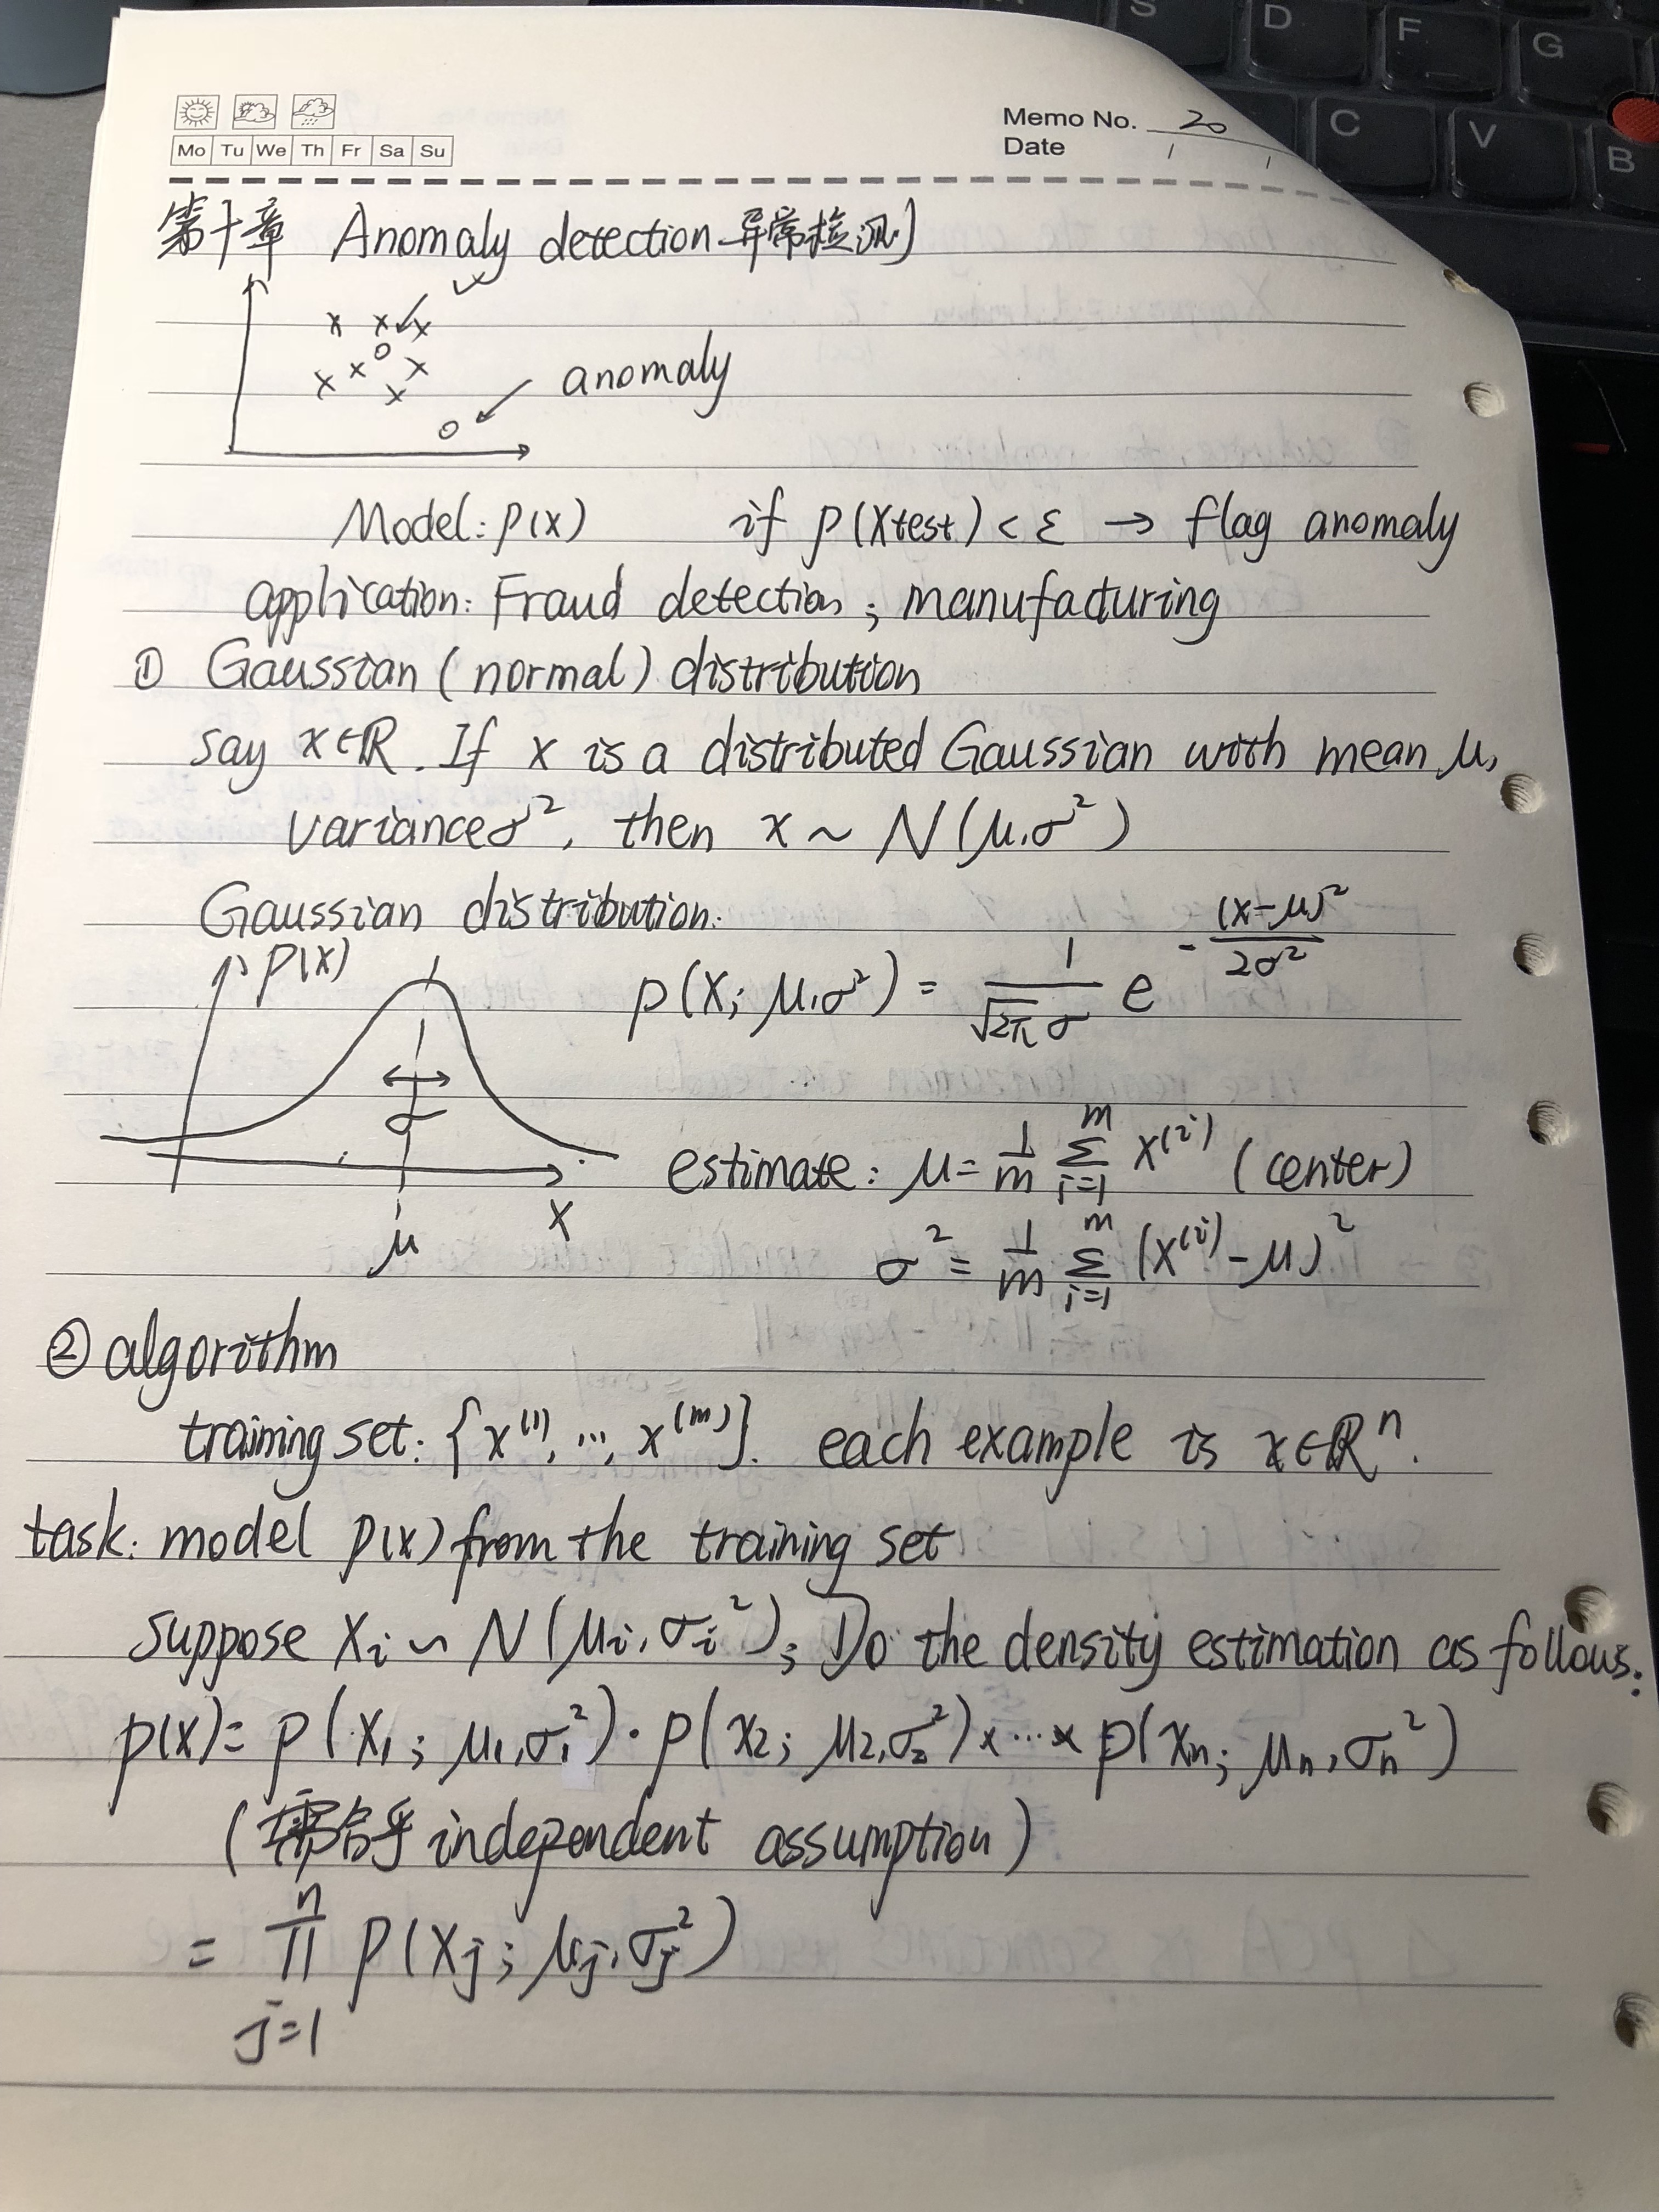 S D F G
C V B
Memo No. 20
Date / /
Mo Tu We Th Fr Sa Su
第十章 Anomaly detection 异常检测
anomaly
Model: p(x) if p(xtest) < ε → flag anomaly
application: Fraud detection; manufacturing
① Gaussian (normal) distribution
say x∈ℝ. If x is a distributed Gaussian with mean μ,
variance σ², then x ~ N(μ,σ²)
Gaussian distribution:
p(x)
p(x; μ,σ²) = 1/(√2π σ) e^(-(x-μ)²/2σ²)
σ
estimate: μ = 1/m Σ_{i=1}^{m} x^(i) (center)
x
μ
σ² = 1/m Σ_{i=1}^{m} (x^(i) - μ)²
② algorithm
training set: {x^(1), ..., x^(m)}. each example is x∈ℝⁿ.
task: model p(x) from the training set
suppose x_i ~ N(μ_i, σ_i²); Do the density estimation as follows:
p(x) = p(x₁; μ₁,σ₁²)·p(x₂; μ₂,σ₂²)×...×p(x_n; μ_n,σ_n²)
(independent assumption)
= Π_{j=1}^{n} p(x_j; μ_j,σ_j²)